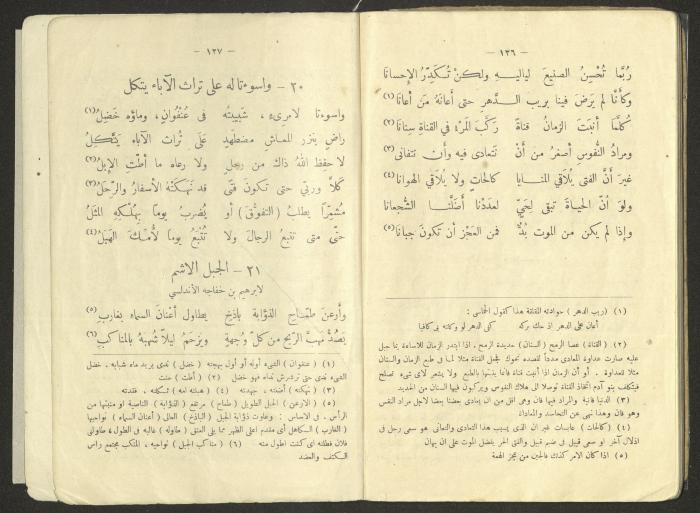 — ١٣٦ —
رُبَّما تُحْسِنُ الصنيعَ لياليهِ ولكنْ تُكَدِّرُ الإِحسانا
وكأنَّا لم يَرضَ فينا بريبِ الدَّهرِ حتى أعانَهُ مَن أعانا (١)
كُلَّما أنبَتَ الزمانُ قناةً ركَّبَ المَرْءُ في القناةِ سِنانا (٢)
ومرادُ النُّفوسِ أصغرُ من أنْ نَتعادى فيهِ وأَن نتفانى (٣)
غيرَ أنَّ الفتى يُلاقي المنايا كالحاتٍ ولا يُلاقي الهوانا (٤)
ولوَ أنَّ الحياةَ تبقى لِحَيٍّ لعدَدْنا أضَلَّنا الشُّجعانا
وإِذا لم يكن من الموتِ بُدٌّ فمن العَجْزِ أن تكونَ جبانا (٥)
(١) (ريب الدهر) حوادثه المقلقة هذا كقول الحماسي :
أعان على الدهر اذ حك بركه كفى الدهر لو وكلته بي كافيا
(٢) (القناة) عصا الرمح (السنان) حديدة الرمح ، اذا ابتدر الزمان للاساءة بما جبل
عليه صارت عداوة المعادي مدداً لقصده نحوك فجعل القناة مثلا لما في طبع الزمان والسنان
مثلا للعداوة . أو أن الزمان اذا أنبت قناة فانما ينبتها بالطبع ولا يشعر لاي شيء تصلح
فيتكلف بنو آدم اتخاذ القناة توصلا الى هلاك النفوس ويركبون فيها السنان من الحديد
(٣) الدنيا فانية والمراد فيها فان وهي اقل من ان يعادي بعضنا بعضا لاجل مراد النفس
وهو فان وهذا نهي عن التحاسد والمعاداة
(٤) (كالحات) عابسات غير ان الذى يسبب هذا التعادى والتفانى هو سعى رجل فى
اذلال آخر او سعى قبيل فى ضيم قبيل والفتى الحر يفضل الموت على ان يهان
(٥) اذا كان الامر كذلك فالجبن من عجز الهمة
— ١٣٧ —
٢٠ – واسوءتا له على تراث الآباء يتكل
واسوءتا لامرىءٍ ، شبيبتُه في عُنْفُوانٍ، وماؤه خَضِلُ (١)
راضٍ بنزر المعاش مضطهَدٍ على تُراث الآباء يَتَّكِلُ
لا حفِظ اللهُ ذاك من رجلٍ ولا رعاه ما أطَّتِ الإِبلُ (٢)
كلاَّ وربي حتى تكونَ فتًى قد نَهَكَتْهُ الأسفارُ والرِّحَلُ (٣)
مُشَمِّرًا يطلُبُ (التفوُّقَ) أو يُضرَبَ يوماً بهُلْكِهِ المثَلُ
حتَّى متى تتبَعُ الرجالَ ولا تُتْبَعُ يوماً لأمِّكَ الهَبَلُ (٤)
٢١ – الجبل الاشم
لابرهيم بن خفاجه الأندلسي
وأرعنَ طمَّاحِ الذؤابة باذخٍ يطاول أعنانَ السماء بغاربِ (٥)
يصُدُّ مهبَّ الرّيح من كلّ وُجهةٍ ويزحَمُ ليلًا شُهبَهُ بالمناكبِ (٦)
(١) (عنفوان) الشيء أوله أو أول بهجته (خضل) ندى يريد ماء شبابه . خضل
الشيء ندى حتى ترشرش نداه فهو خضل (٢) (أطت) حنت
(٣) (نهكته) أضنته . جهدته (٤) (هبلته أمه) ثكلته . فقدته
(٥) (الارعن) الجبل الطويل (طماح) مرتفع (الذؤابة) الناصية او منبتها من
الرأس . فى الاساس : وعلوت ذؤابة الجبل (الباذخ) العالى (أعنان السماء) نواحيها
(الغارب) الكاهل أى مقدم اعلى الظهر مما يلى العنق (طاوله) غالبه فى الطول ، طاولنى
فلان فطلته اى كنت اطول منه (٦) (مناكب الجبل) نواحيه ، المنكب مجتمع راس
الكتف والعضد